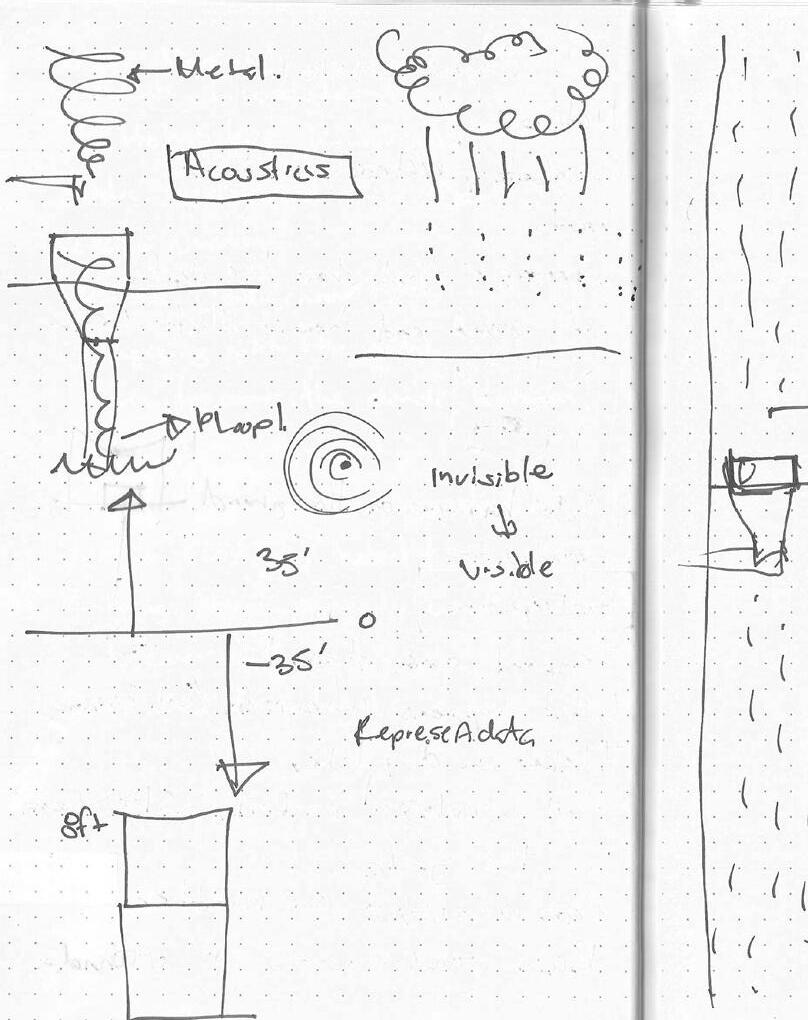 Metal.
Acoustics
Ploop!
Invisible
visible
35'
0
-35'
Represent data
8ft